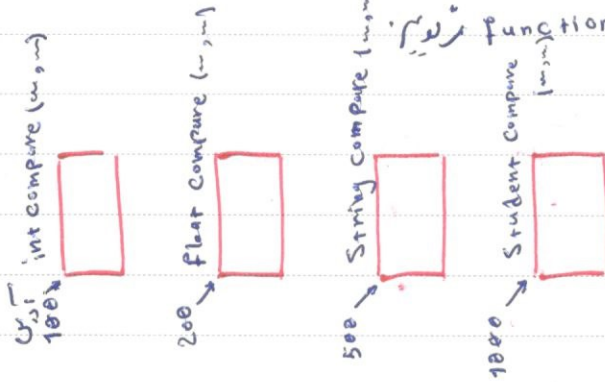 function
int compare (~,~)
float compare (~,~)
String compare (~,~)
Student compare
(~,~)
آدرس
100
200
500
1000